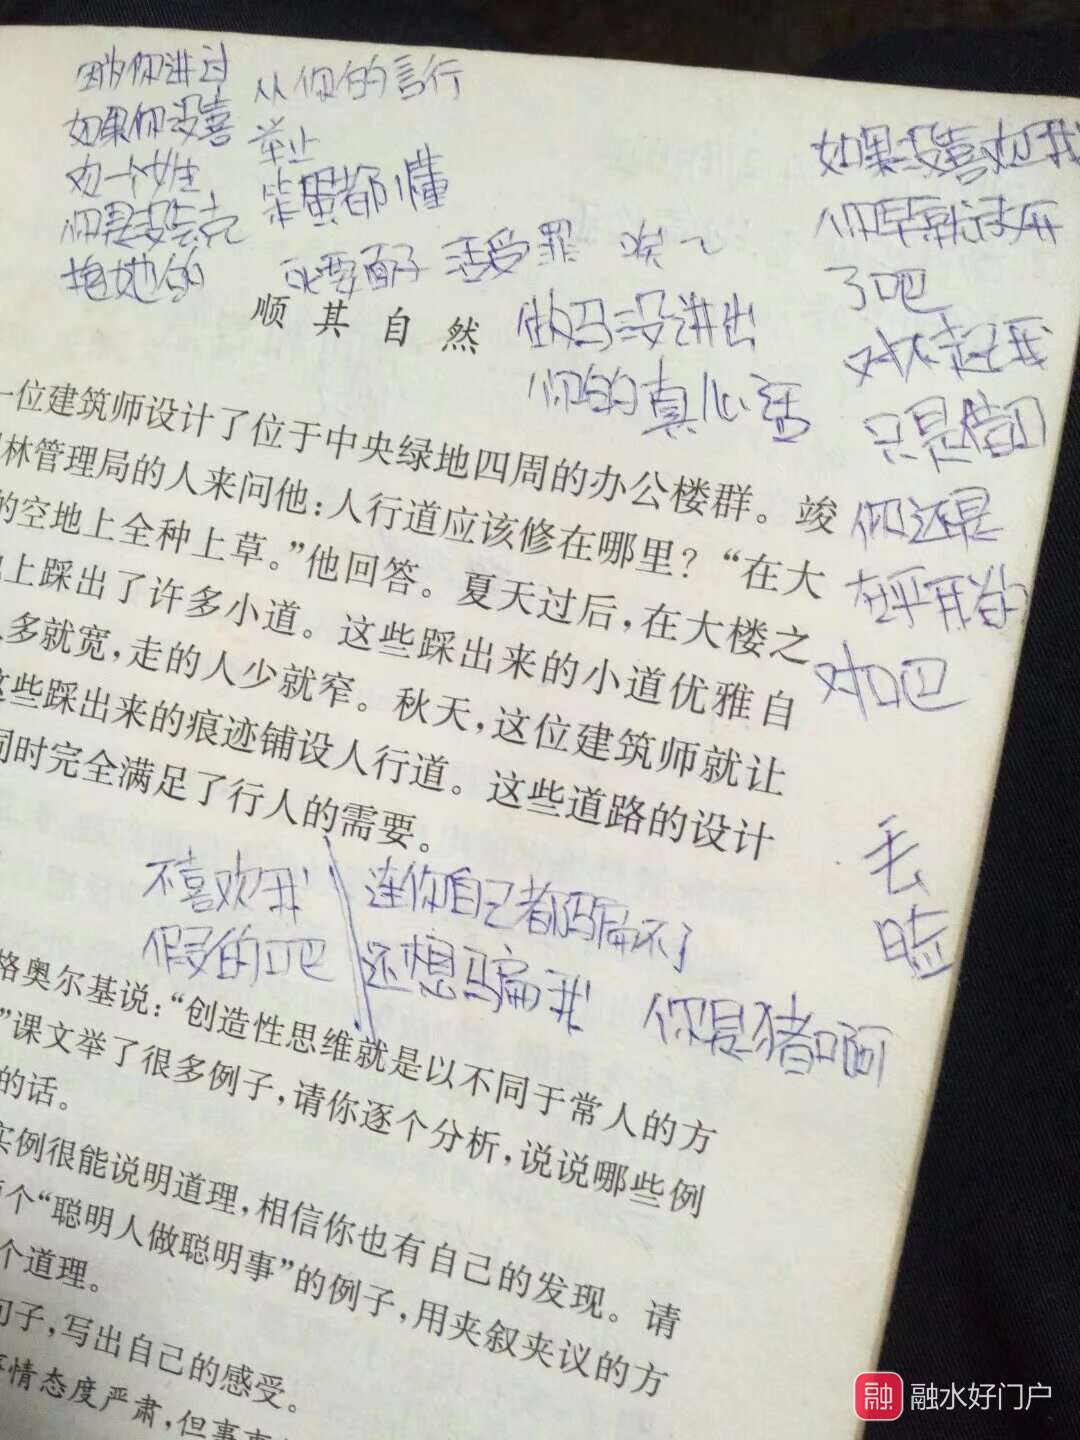 因为你讲过
如果你没喜
欢一个女生
你是没会去
抱她的
从你的言行
举止
笨蛋都懂
死要面子 活受罪 唉~
做马没讲出
你的真心话
如果没喜欢我
你早就试开
了吧
对不起我
只是借口
你还是
在乎我的
对吧
顺其自然
一位建筑师设计了位于中央绿地四周的办公楼群。竣
林管理局的人来问他:人行道应该修在哪里?“在大
的空地上全种上草。”他回答。夏天过后,在大楼之
上踩出了许多小道。这些踩出来的小道优雅自
多就宽,走的人少就窄。秋天,这位建筑师就让
这些踩出来的痕迹铺设人行道。这些道路的设计
同时完全满足了行人的需要。
不喜欢我
假的吧
连你自己都骗不了
还想骗我
你是猪啊
格奥尔基说:“创造性思维就是以不同于常人的方
”课文举了很多例子,请你逐个分析,说说哪些例
的话。
实例很能说明道理,相信你也有自己的发现。请
个“聪明人做聪明事”的例子,用夹叙夹议的方
个道理。
句子,写出自己的感受。
事情态度严肃,但事
融 融水好门户